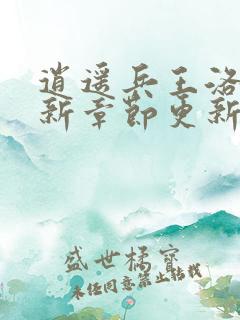 逍遥兵王洛
新章节更新
盛世橘宝
未经同意禁止转载